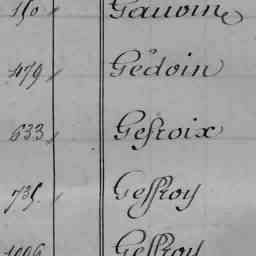 150 Gauvin
479 Gédoin
633 Gefroix
735 Geffroy
1006 Geffroy